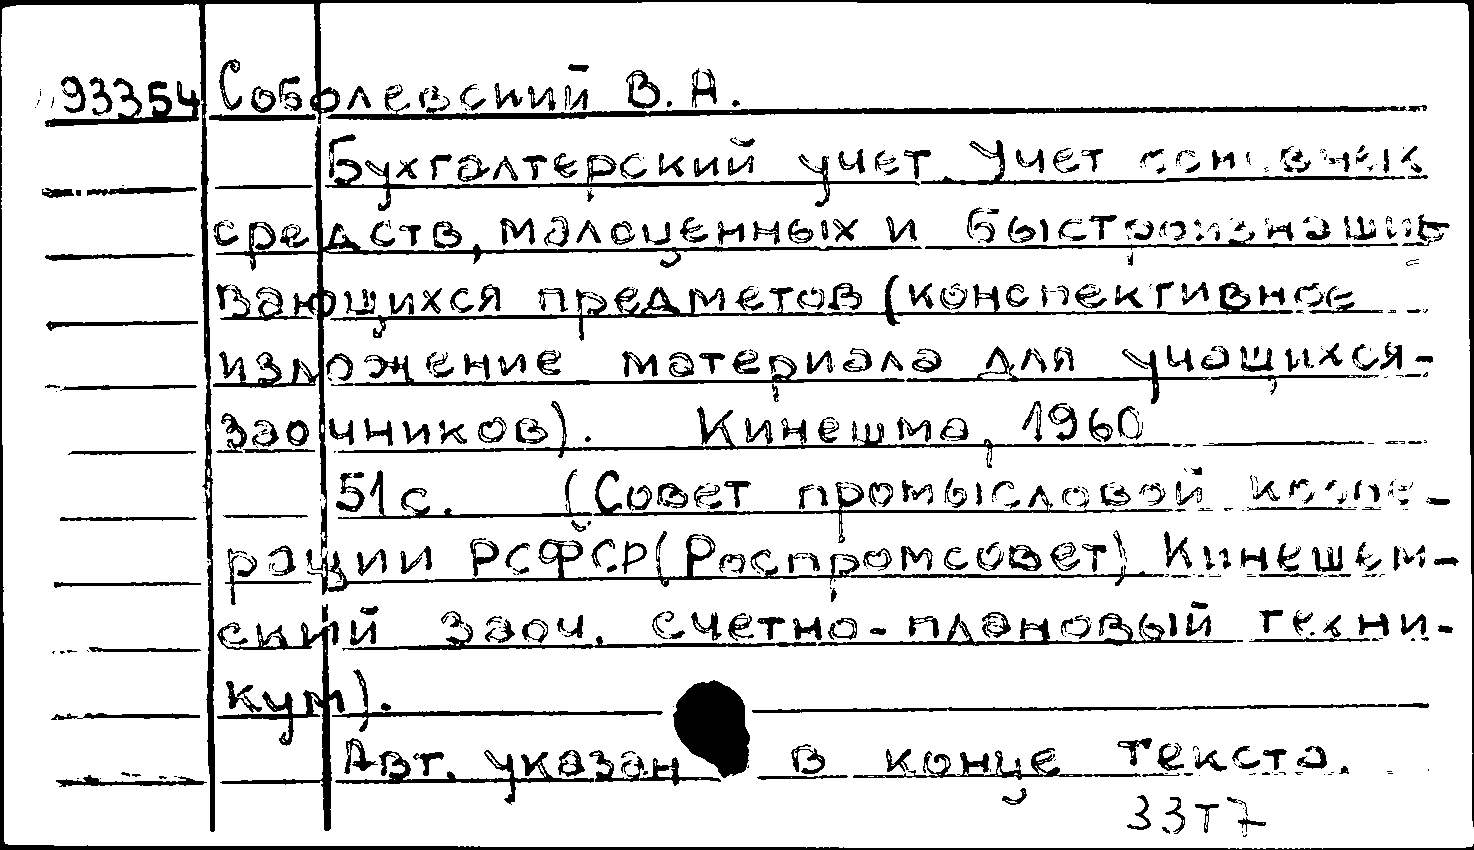 93354 Соболевский В.А.
Бухгалтерский учет. Учет основных
средств, малоценных и быстроизнаши-
вающихся предметов (конспективное
изложение материала для учащихся-
заочников). Кинешма, 1960
51 с. (Совет промысловой коопе-
рации РСФСР (Роспромсовет). Кинешем-
ский заоч. счетно-плановый техни-
кум).
Авт. указан в конце текста.
33Т7